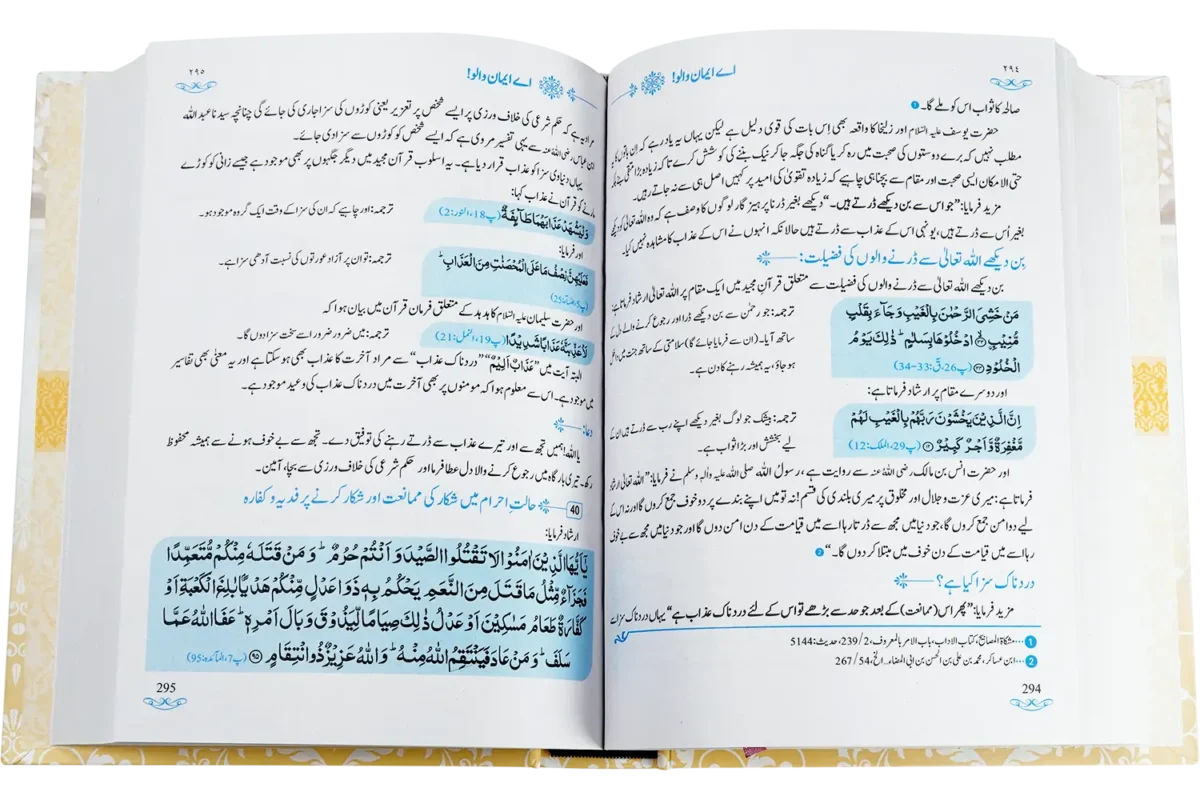 ٢٩٤
اے ایمان والو!
صالحہ کا ثواب اس کو ملے گا۔ ❶
حضرت یوسف علیہ السلام اور زلیخا کا واقعہ بھی اِس بات کی قوی دلیل ہے لیکن یہاں یہ یاد رہے کہ ان باتوں کا یہ
مطلب نہیں کہ برے دوستوں کی صحبت میں رہ کر یا گناہ کی جگہ جا کر نیک بننے کی کوشش کرے تاکہ زیادہ بڑا متقی بنے بلکہ
حتی الامکان ایسی صحبت اور مقام سے بچنا ہی چاہیے کہ زیادہ تقویٰ کی امید پر کہیں اصل ہی سے نہ جاتے رہیں۔
مزید فرمایا: ”جو اس سے بن دیکھے ڈرتے ہیں۔“ دیکھے بغیر ڈرنا پرہیز گار لوگوں کا وصف ہے کہ وہ اللہ تعالیٰ کو دیکھے
بغیر اُس سے ڈرتے ہیں، یونہی اس کے عذاب سے ڈرتے ہیں حالانکہ انہوں نے اس کے عذاب کا مشاہدہ نہیں کیا۔
بِن دیکھے اللہ تعالیٰ سے ڈرنے والوں کی فضیلت:
بن دیکھے اللہ تعالیٰ سے ڈرنے والوں کی فضیلت سے متعلق قرآنِ مجید میں ایک مقام پر اللہ تعالیٰ ارشاد فرماتا ہے:
مَنْ خَشِیَ الرَّحْمٰنَ بِالْغَیْبِ وَ جَآءَ بِقَلْبٍ
مُّنِیْبِۙ﴿۳۳﴾ ادْخُلُوْهَا بِسَلٰمٍؕ ذٰلِكَ یَوْمُ
الْخُلُوْدِ﴿۳۴﴾ (پ26، قٓ: 33-34)
ترجمہ: جو رحمٰن سے بن دیکھے ڈرا اور رجوع کرنے والے دل کے
ساتھ آیا۔ (ان سے فرمایا جائے گا) سلامتی کے ساتھ جنت میں داخل
ہو جاؤ، یہ ہمیشہ رہنے کا دن ہے۔
اور دوسرے مقام پر ارشاد فرماتا ہے:
اِنَّ الَّذِیْنَ یَخْشَوْنَ رَبَّهُمْ بِالْغَیْبِ لَهُمْ
مَّغْفِرَةٌ وَّ اَجْرٌ كَبِیْرٌ﴿۱۲﴾ (پ29، الملک: 12)
ترجمہ: بیشک جو لوگ بغیر دیکھے اپنے رب سے ڈرتے ہیں ان کے
لیے بخشش اور بڑا ثواب ہے۔
اور حضرت انس بن مالک رضی اللہ عنہ سے روایت ہے، رسولُ اللہ صلی اللہ علیہ واٰلہٖ وسلم نے فرمایا: ”اللہ تعالیٰ ارشاد
فرماتا ہے: میری عزت و جلال اور مخلوق پر میری بلندی کی قسم! نہ تو میں اپنے بندے پر دو خوف جمع کروں گا اور نہ اس کے
لیے دو امن جمع کروں گا، جو دنیا میں مجھ سے ڈرتا رہا اسے میں قیامت کے دن امن دوں گا اور جو دنیا میں مجھ سے بے خوف
رہا اسے میں قیامت کے دن خوف میں مبتلا کر دوں گا۔“ ❷
دردناک سزا کیا ہے؟
مزید فرمایا: ”پھر اس (ممانعت) کے بعد جو حد سے بڑھے تو اس کے لئے دردناک عذاب ہے“ یہاں دردناک سزا سے
❶ ...مشکاۃ المصابیح، کتاب الاداب، باب الامر بالمعروف، 2/239، حدیث: 5144
❷ ...ابن عساکر، محمد بن علی بن الحسن بن ابی المضاء...الخ، 54/267
294
٢٩٥
اے ایمان والو!
مراد یہ ہے کہ حکم شرعی کی خلاف ورزی پر ایسے شخص پر تعزیر یعنی کوڑوں کی سزا جاری کی جائے گی چنانچہ سیدنا عبد اللہ
ابن عباس رضی اللہ عنہ سے یہی تفسیر مروی ہے کہ ایسے شخص کو کوڑوں سے سزا دی جائے۔
یہاں دنیاوی سزا کو عذاب قرار دیا ہے۔ یہ اسلوب قرآن مجید میں دیگر جگہوں پر بھی موجود ہے جیسے زانی کو کوڑے
مارنے کو قرآن نے عذاب کہا:
وَلْیَشْهَدْ عَذَابَهُمَا طَآىِٕفَةٌ (پ18، النور: 2)
ترجمہ: اور چاہیے کہ ان کی سزا کے وقت ایک گروہ موجود ہو۔
اور فرمایا:
فَعَلَیْهِنَّ نِصْفُ مَا عَلَى الْمُحْصَنٰتِ مِنَ الْعَذَابِؕ
(پ5، النساء: 25)
ترجمہ: تو ان پر آزاد عورتوں کی نسبت آدھی سزا ہے۔
اور حضرت سلیمان علیہ السلام کا ہدہد کے متعلق فرمان قرآن میں بیان ہوا کہ
لَاُعَذِّبَنَّهٗ عَذَابًا شَدِیْدًا (پ19، النمل: 21)
ترجمہ: میں ضرور ضرور اسے سخت سزا دوں گا۔
البتہ آیت میں ”عَذَابٌ اَلِیْمٌ“ ”دردناک عذاب“ سے مراد آخرت کا عذاب بھی ہو سکتا ہے اور یہ معنی بھی تفاسیر
میں موجود ہے۔ اس سے معلوم ہوا کہ مومنوں پر بھی آخرت میں دردناک عذاب کی وعید موجود ہے۔
دعا:
یا اللہ! ہمیں تجھ سے اور تیرے عذاب سے ڈرتے رہنے کی توفیق دے۔ تجھ سے بے خوف ہونے سے ہمیشہ محفوظ
رکھ۔ تیری بارگاہ میں رجوع کرنے والا دل عطا فرما اور حکم شرعی کی خلاف ورزی سے بچا، آمین۔
40 حالتِ احرام میں شکار کی ممانعت اور شکار کرنے پر فدیہ و کفارہ
ارشاد فرمایا:
یٰۤاَیُّهَا الَّذِیْنَ اٰمَنُوْا لَا تَقْتُلُوا الصَّیْدَ وَ اَنْتُمْ حُرُمٌؕ وَ مَنْ قَتَلَهٗ مِنْكُمْ مُّتَعَمِّدًا
فَجَزَآءٌ مِّثْلُ مَا قَتَلَ مِنَ النَّعَمِ یَحْكُمُ بِهٖ ذَوَا عَدْلٍ مِّنْكُمْ هَدْیًۢا بٰلِغَ الْكَعْبَةِ اَوْ
كَفَّارَةٌ طَعَامُ مَسٰكِیْنَ اَوْ عَدْلُ ذٰلِكَ صِیَامًا لِّیَذُوْقَ وَبَالَ اَمْرِهٖؕ عَفَا اللّٰهُ عَمَّا
سَلَفَؕ وَ مَنْ عَادَ فَیَنْتَقِمُ اللّٰهُ مِنْهُؕ وَ اللّٰهُ عَزِیْزٌ ذُو انْتِقَامٍ﴿۹۵﴾ (پ7، المآئدہ: 95)
295